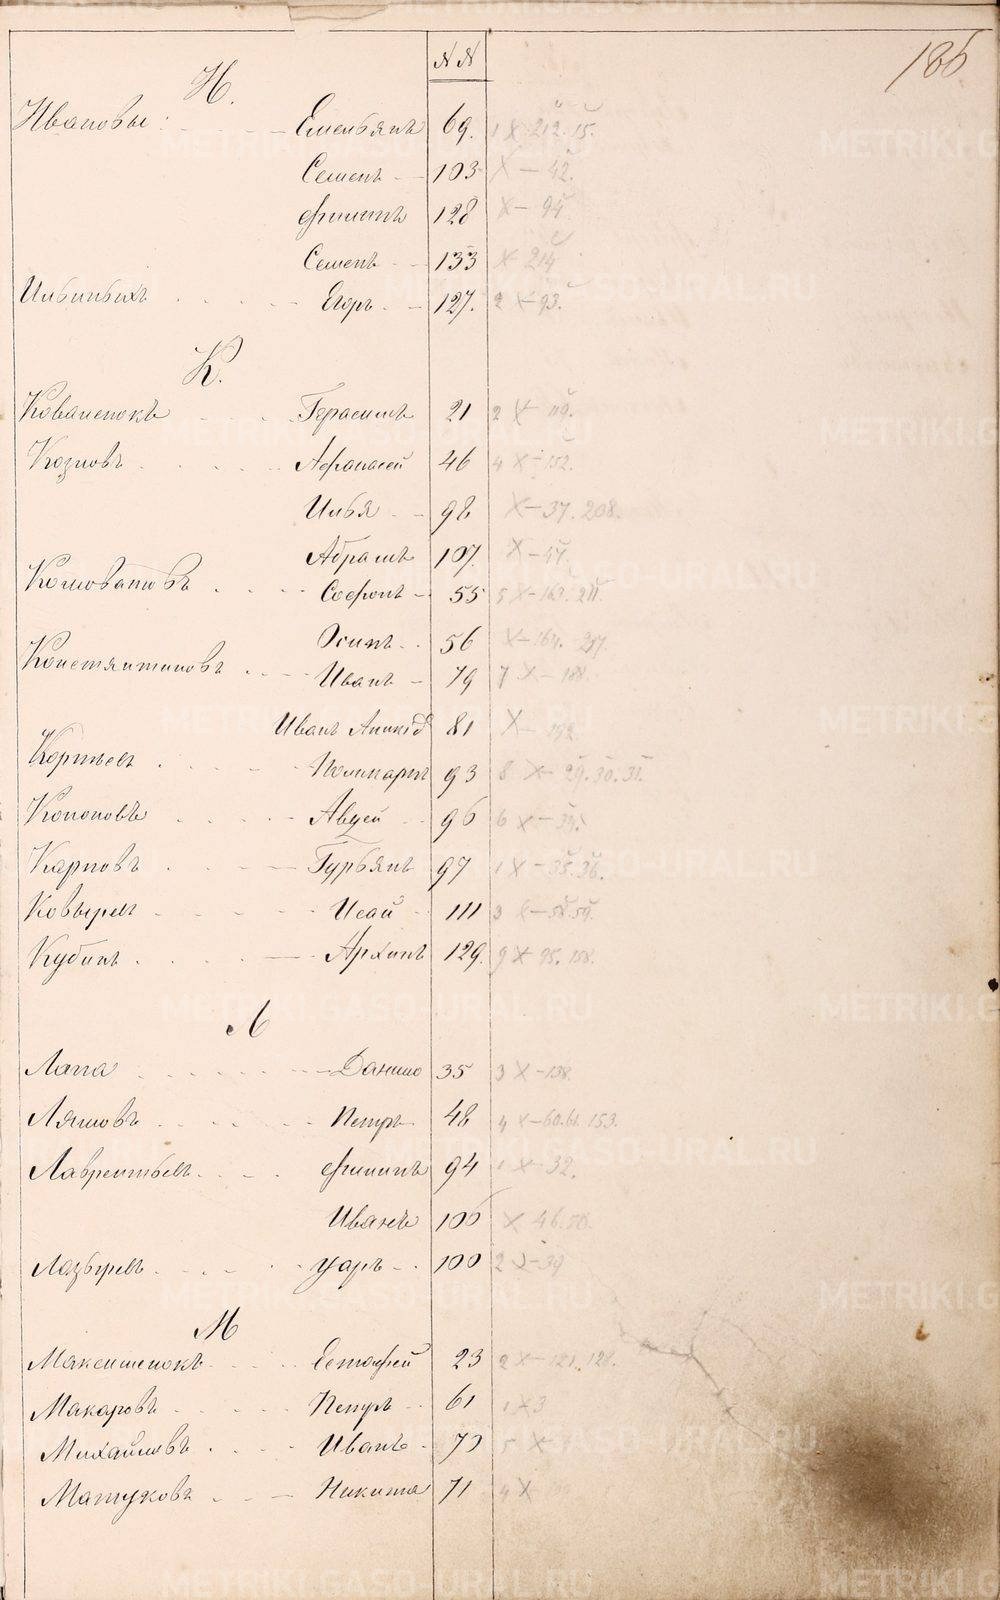 NN
186
И.
Ивановы Емельянъ 69. 1 X 212. 15.
Семенъ 103 X — 42.
Филипъ 128 X — 94
Семенъ 133 X 214
Ильиныхъ Егоръ 127. 2 X — 93.
К.
Ковалетокъ Герасимъ 21 2 X — 119.
Козловъ Афанасей 46 4 X — 152.
Илья 98 X — 37. 208.
Абрамъ 107. X — 47.
Колмоватовъ Софонъ 55 5 X — 163. 211.
Осипъ 56 X — 164. 217.
Константиновъ Иванъ 79 7 X — 188.
Иванъ 81 X — 192
Корнѣевъ Поликарпъ 93 8 X — 29. 30. 31.
Кононовъ Авдей 96 6 X — 34.
Карповъ Гурьянъ 97 1 X — 35. 36.
Ковыревъ Исай 111 3 X — 58. 59.
Кубинъ Архипъ 129. 9 X 95. 158.
Л
Лапа Данило 35 3 X — 138
Ляповъ Петръ 48 4 X — 60. 61. 153.
Лаврентьевъ Филипъ 94 1 X — 32.
Иванъ 106 X 46. 50.
Лазыревъ Уаръ 100 2 X — 39
М
Максименокъ Естафей 23 2 X — 121. 128.
Макаровъ Петръ 61 1 X 3
Михайловъ Иванъ 70 5 X
Матуковъ Никита 71 4 X
METRIKI.GASO-URAL.RU